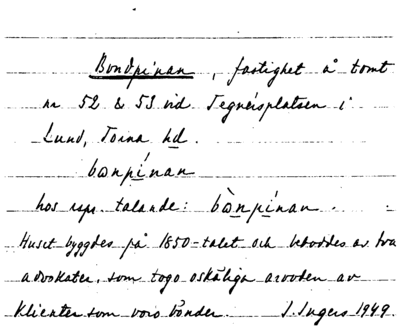 Bondpinan, fastighet å tomt
nr 52 & 53 vid Tegnérsplatsen i
Lund, Torna hd.
bonpínan
hos rspr. talande: bònpínan.
Huset byggdes på 1850-talet och beboddes av två
advokater, som togo oskäliga arvoden av
klienter som voro bönder. I. Ingers 1949.